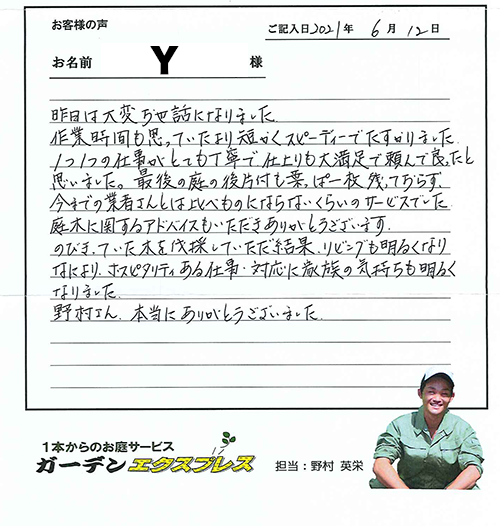 お客様の声
ご記入日 2021年 6月 12日
お名前 Y 様
昨日は大変お世話になりました
作業時間も思っていたより短かくスピーディーでたすかりました
1つ1つの仕事がとても丁寧で仕上りも大満足で頼んで良ったと
思いました。最後の庭の後片付も葉っぱ一枚残っておらず、
今までの業者さんとは比べものにならないくらいのサービスでした
庭木に関するアドバイスもいただきありがとうございます
のびきっていた木を伐採していただ結果、リビングも明るくなり
なにより、ホスピタリティある仕事・対応に家族の気持ちも明るく
なりました
野村さん、本当にありがとうございました
1本からのお庭サービス
ガーデンエクスプレス
担当：野村 英栄